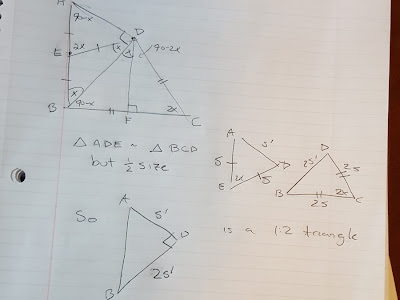 A
90-x
D
E
2x
x
90-2x
x
B
90-x
F
2x
C
△ ADE ~ △ BCD
but 1/2 size
A
s'
s
D
2x
s
E
D
2s'
2s
B
2x
2s
C
So
A
s'
D
2s'
B
is a 1:2 triangle